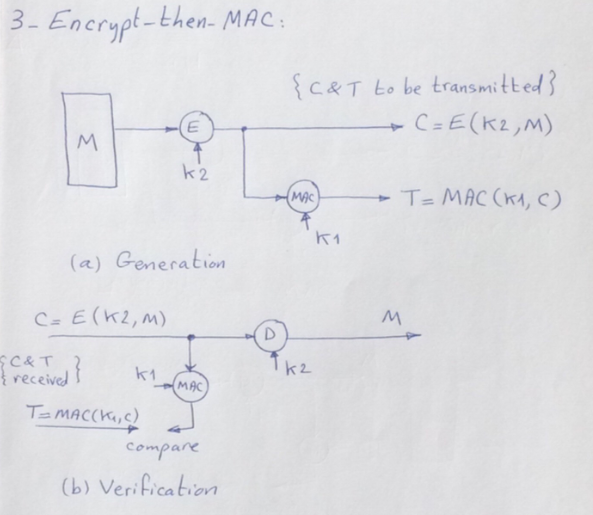 3- Encrypt-then-MAC:
{C & T to be transmitted}
M
E
C = E(K2, M)
K2
MAC
T = MAC(K1, C)
K1
(a) Generation
C = E(K2, M)
D
M
{C & T received}
K1
MAC
K2
T = MAC(K1, C)
compare
(b) Verification